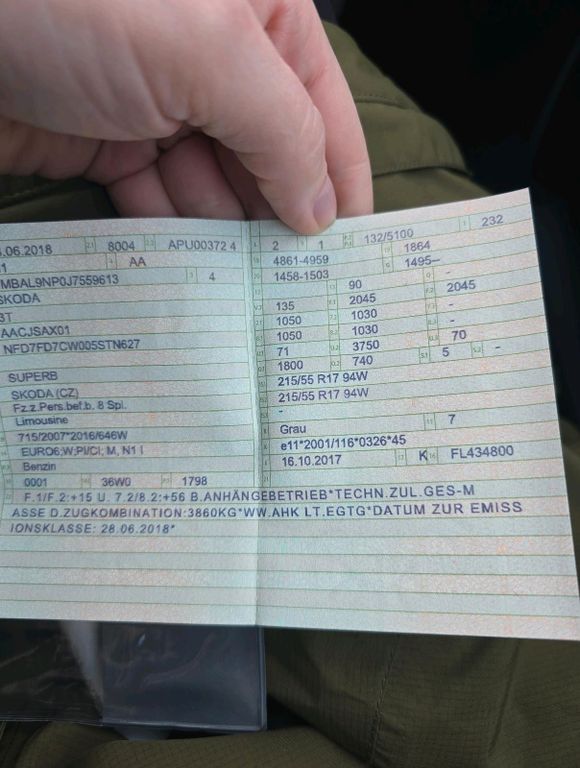 .06.2018 8004 APU00372 4
1 AA
MBAL9NP0J7559613 4
SKODA
3T
AACJSAX01
NFD7FD7CW005STN627
SUPERB
SKODA (CZ)
Fz.z.Pers.bef.b. 8 Spl.
Limousine
715/2007*2016/646W
EURO6;W:PI/CI; M, N1 I
Benzin
0001 36W0 1798
2 1 132/5100 232
4861-4959 1864
1458-1503 1495-
90 -
135 2045 2045
1050 1030 -
1050 1030 -
71 3750 70
1800 740 5 -
215/55 R17 94W
215/55 R17 94W
-
Grau 7
e11*2001/116*0326*45
16.10.2017 K FL434800
F.1/F.2:+15 U. 7.2/8.2:+56 B.ANHÄNGEBETRIEB*TECHN.ZUL.GES-M
ASSE D.ZUGKOMBINATION:3860KG*WW.AHK LT.EGTG*DATUM ZUR EMISS
IONSKLASSE: 28.06.2018*